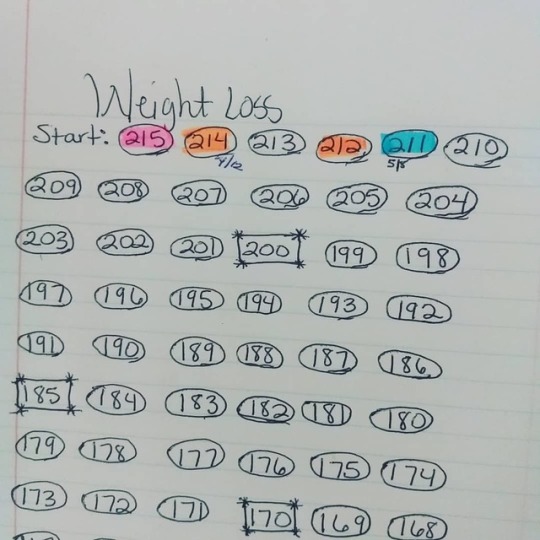 Weight Loss
Start: 215 214 213 212 211 210
4/12 5/5
209 208 207 206 205 204
203 202 201 200 199 198
197 196 195 194 193 192
191 190 189 188 187 186
185 184 183 182 181 180
179 178 177 176 175 174
173 172 171 170 169 168